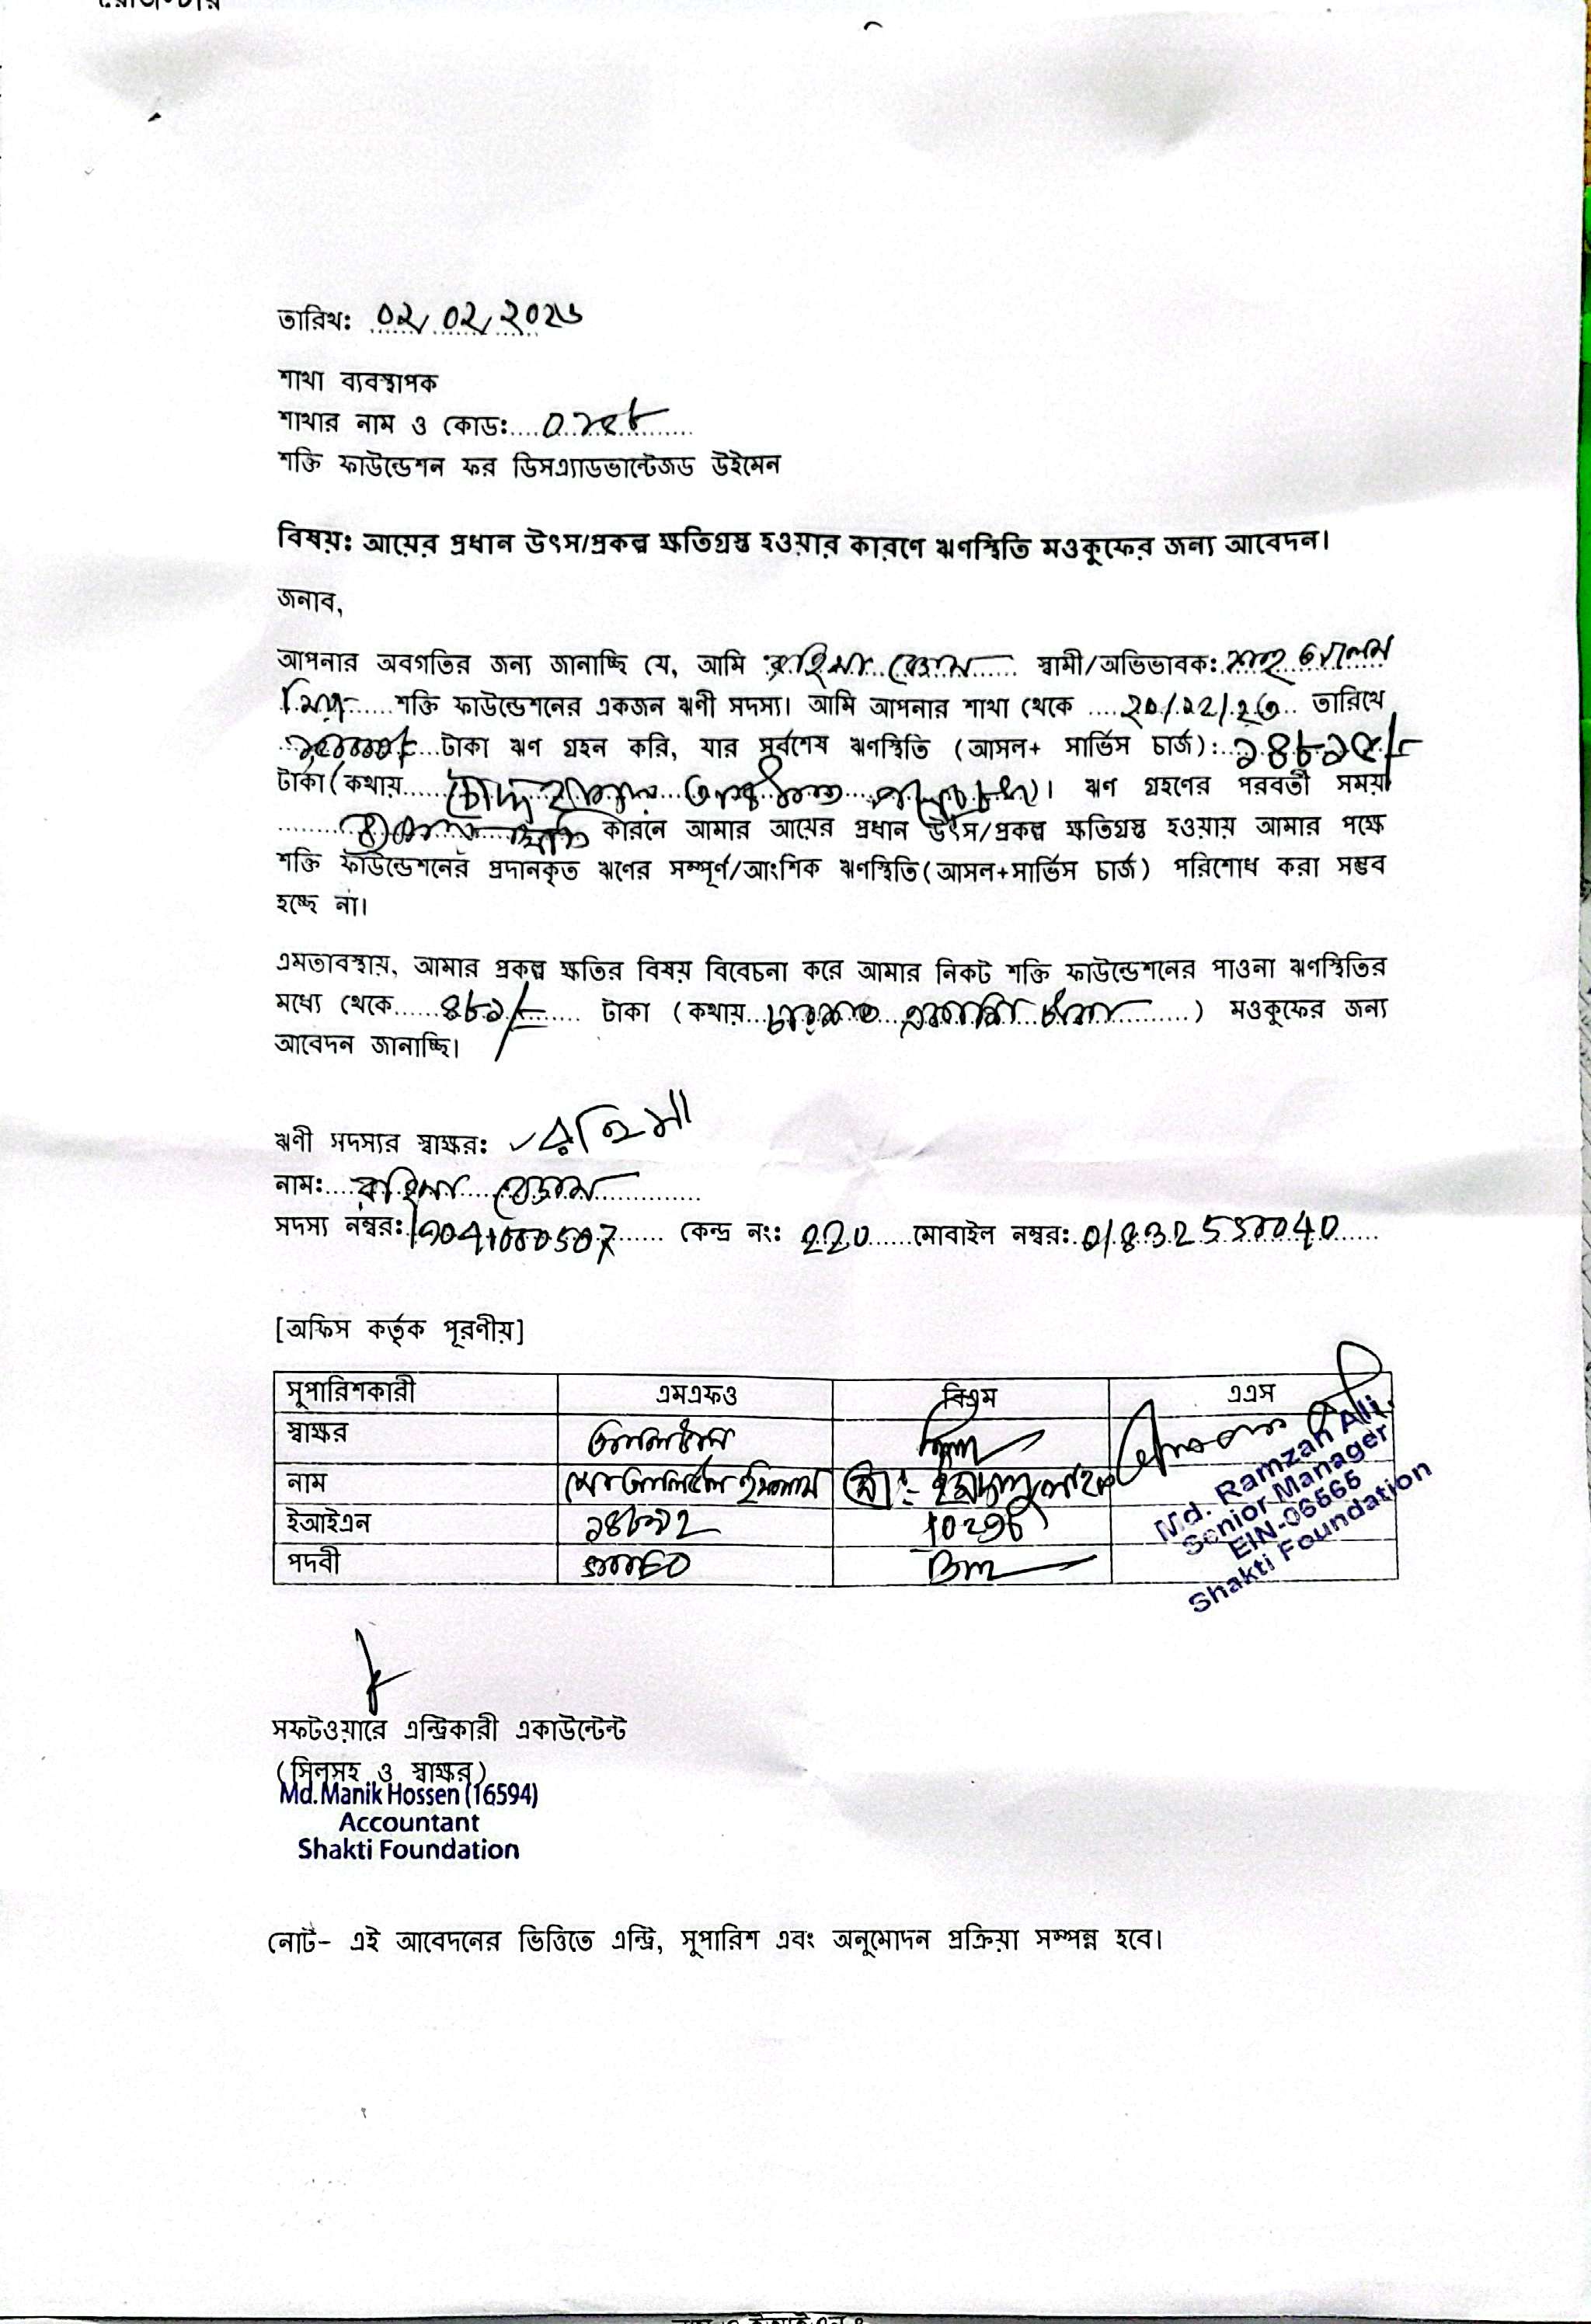 তারিখ: ০২/০২/২০২৬
শাখা ব্যবস্থাপক
শাখার নাম ও কোড:
শক্তি ফাউন্ডেশন ফর ডিসএ্যাডভান্টেজড উইমেন
বিষয়: আয়ের প্রধান উৎস/প্রকল্প ক্ষতিগ্রস্ত হওয়ার কারণে ঋণস্থিতি মওকুফের জন্য আবেদন।
জনাব,
আপনার অবগতির জন্য জানাচ্ছি যে, আমি রহিমা বেগম স্বামী/অভিভাবক:
শক্তি ফাউন্ডেশনের একজন ঋণী সদস্য। আমি আপনার শাখা থেকে তারিখে
টাকা ঋণ গ্রহন করি, যার সর্বশেষ ঋণস্থিতি (আসল+ সার্ভিস চার্জ): ১৪৮১৫/=
টাকা (কথায় চৌদ্দ হাজার আটশত )। ঋণ গ্রহণের পরবর্তী সময়
কারনে আমার আয়ের প্রধান উৎস/প্রকল্প ক্ষতিগ্রস্ত হওয়ায় আমার পক্ষে
শক্তি ফাউন্ডেশনের প্রদানকৃত ঋণের সম্পূর্ণ/আংশিক ঋণস্থিতি(আসল+সার্ভিস চার্জ) পরিশোধ করা সম্ভব
হচ্ছে না।
এমতাবস্থায়, আমার প্রকল্প ক্ষতির বিষয় বিবেচনা করে আমার নিকট শক্তি ফাউন্ডেশনের পাওনা ঋণস্থিতির
মধ্যে থেকে ৪৮১/= টাকা (কথায় চারশত একাশি টাকা ) মওকুফের জন্য
আবেদন জানাচ্ছি।
ঋণী সদস্যর স্বাক্ষর: রহিমা
নাম: রহিমা বেগম
সদস্য নম্বর: কেন্দ্র নং: 220 মোবাইল নম্বর: 01832550040
[অফিস কর্তৃক পূরণীয়]
সুপারিশকারী এমএফও বিএম এএস
স্বাক্ষর
নাম ইসলাম
ইআইএন
পদবী Bm
Md. Ramzan Ali
Senior Manager
EIN-06565
Shakti Foundation
সফটওয়ারে এন্ট্রিকারী একাউন্টেন্ট
(সিলসহ ও স্বাক্ষর)
Md. Manik Hossen (16594)
Accountant
Shakti Foundation
নোট- এই আবেদনের ভিত্তিতে এন্ট্রি, সুপারিশ এবং অনুমোদন প্রক্রিয়া সম্পন্ন হবে।